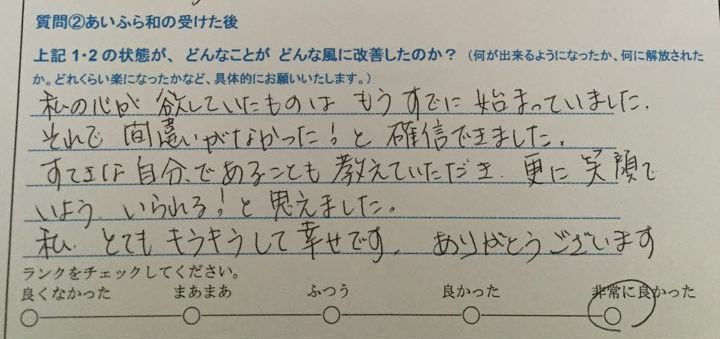 質問②あいふら和の受けた後
上記1・2の状態が、どんなことが どんな風に改善したのか？（何が出来るようになったか、何に解放された
か。どれくらい楽になったかなど、具体的にお願いいたします。）
私の心が 欲していたものは もう すでに 始まっていました．
それで 間違いがなかった！と 確信できました。
すてきな 自分、であることも 教えていただき．更に 笑顔で
いよう．いられる！と 思えました。
私 とても キラキラして 幸せです、 ありがとうございます
ランクをチェックしてください。
良くなかった まあまあ ふつう 良かった 非常に良かった